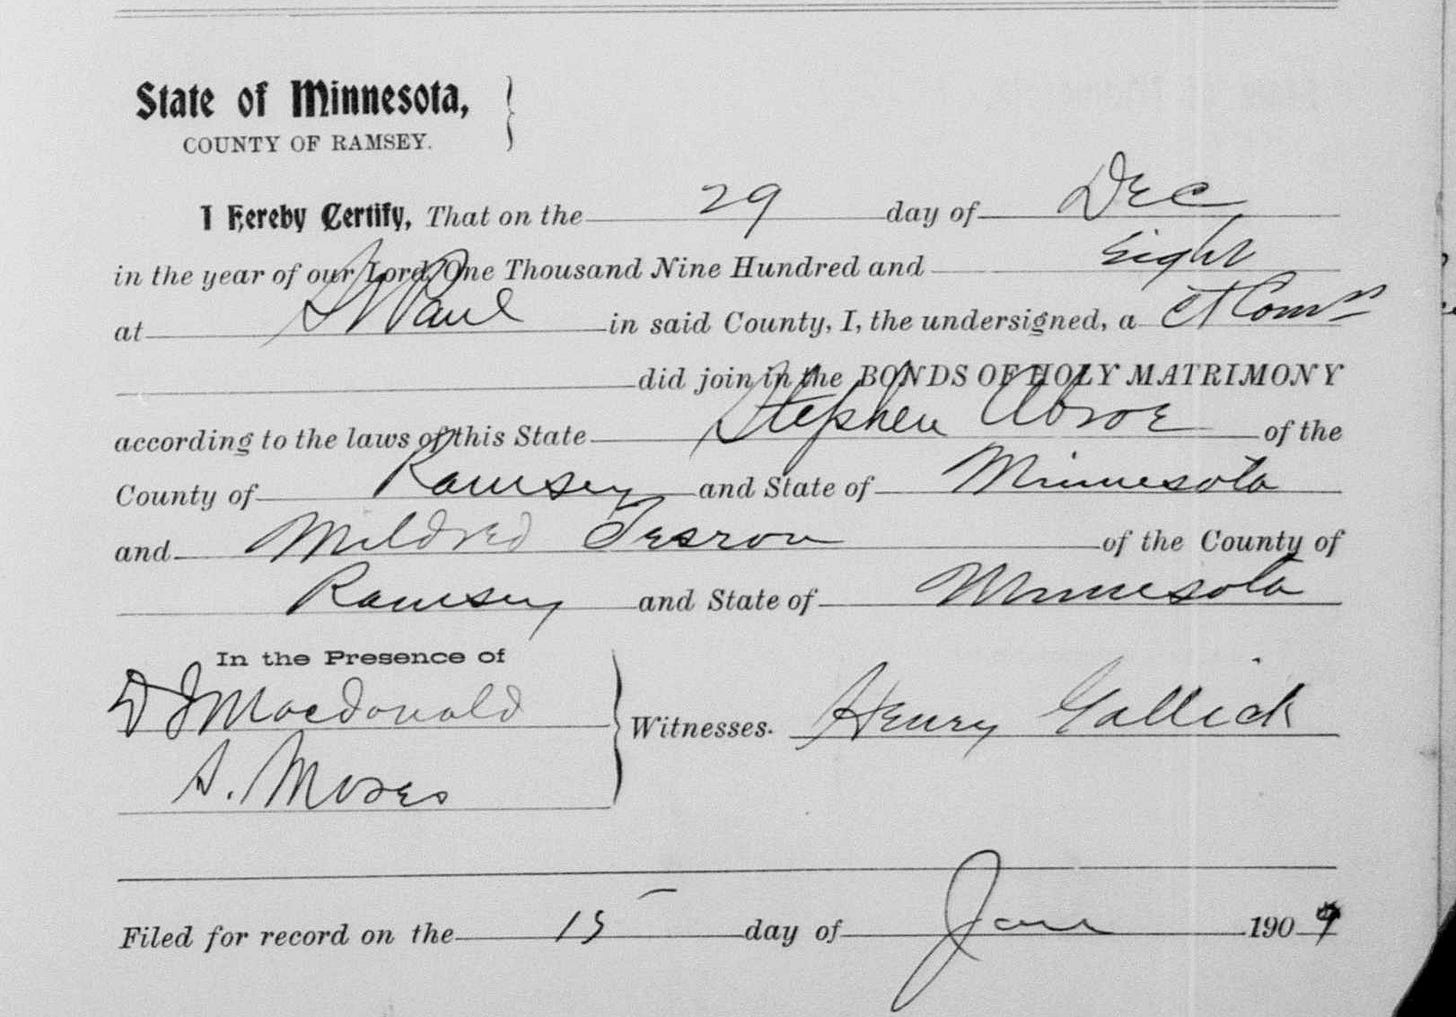 State of Minnesota,
COUNTY OF RAMSEY.
I Hereby Certify, That on the 29 day of Dec
in the year of our Lord One Thousand Nine Hundred and Eight
at St Paul in said County, I, the undersigned, a Ct Comr
did join in the BONDS OF HOLY MATRIMONY
according to the laws of this State Stephen Abroe of the
County of Ramsey and State of Minnesota
and Mildred Tesrou of the County of
Ramsey and State of Minnesota
In the Presence of
D J Macdonald
Witnesses. Henry Gallick
A. Moses
Filed for record on the 15 day of Jan 1909